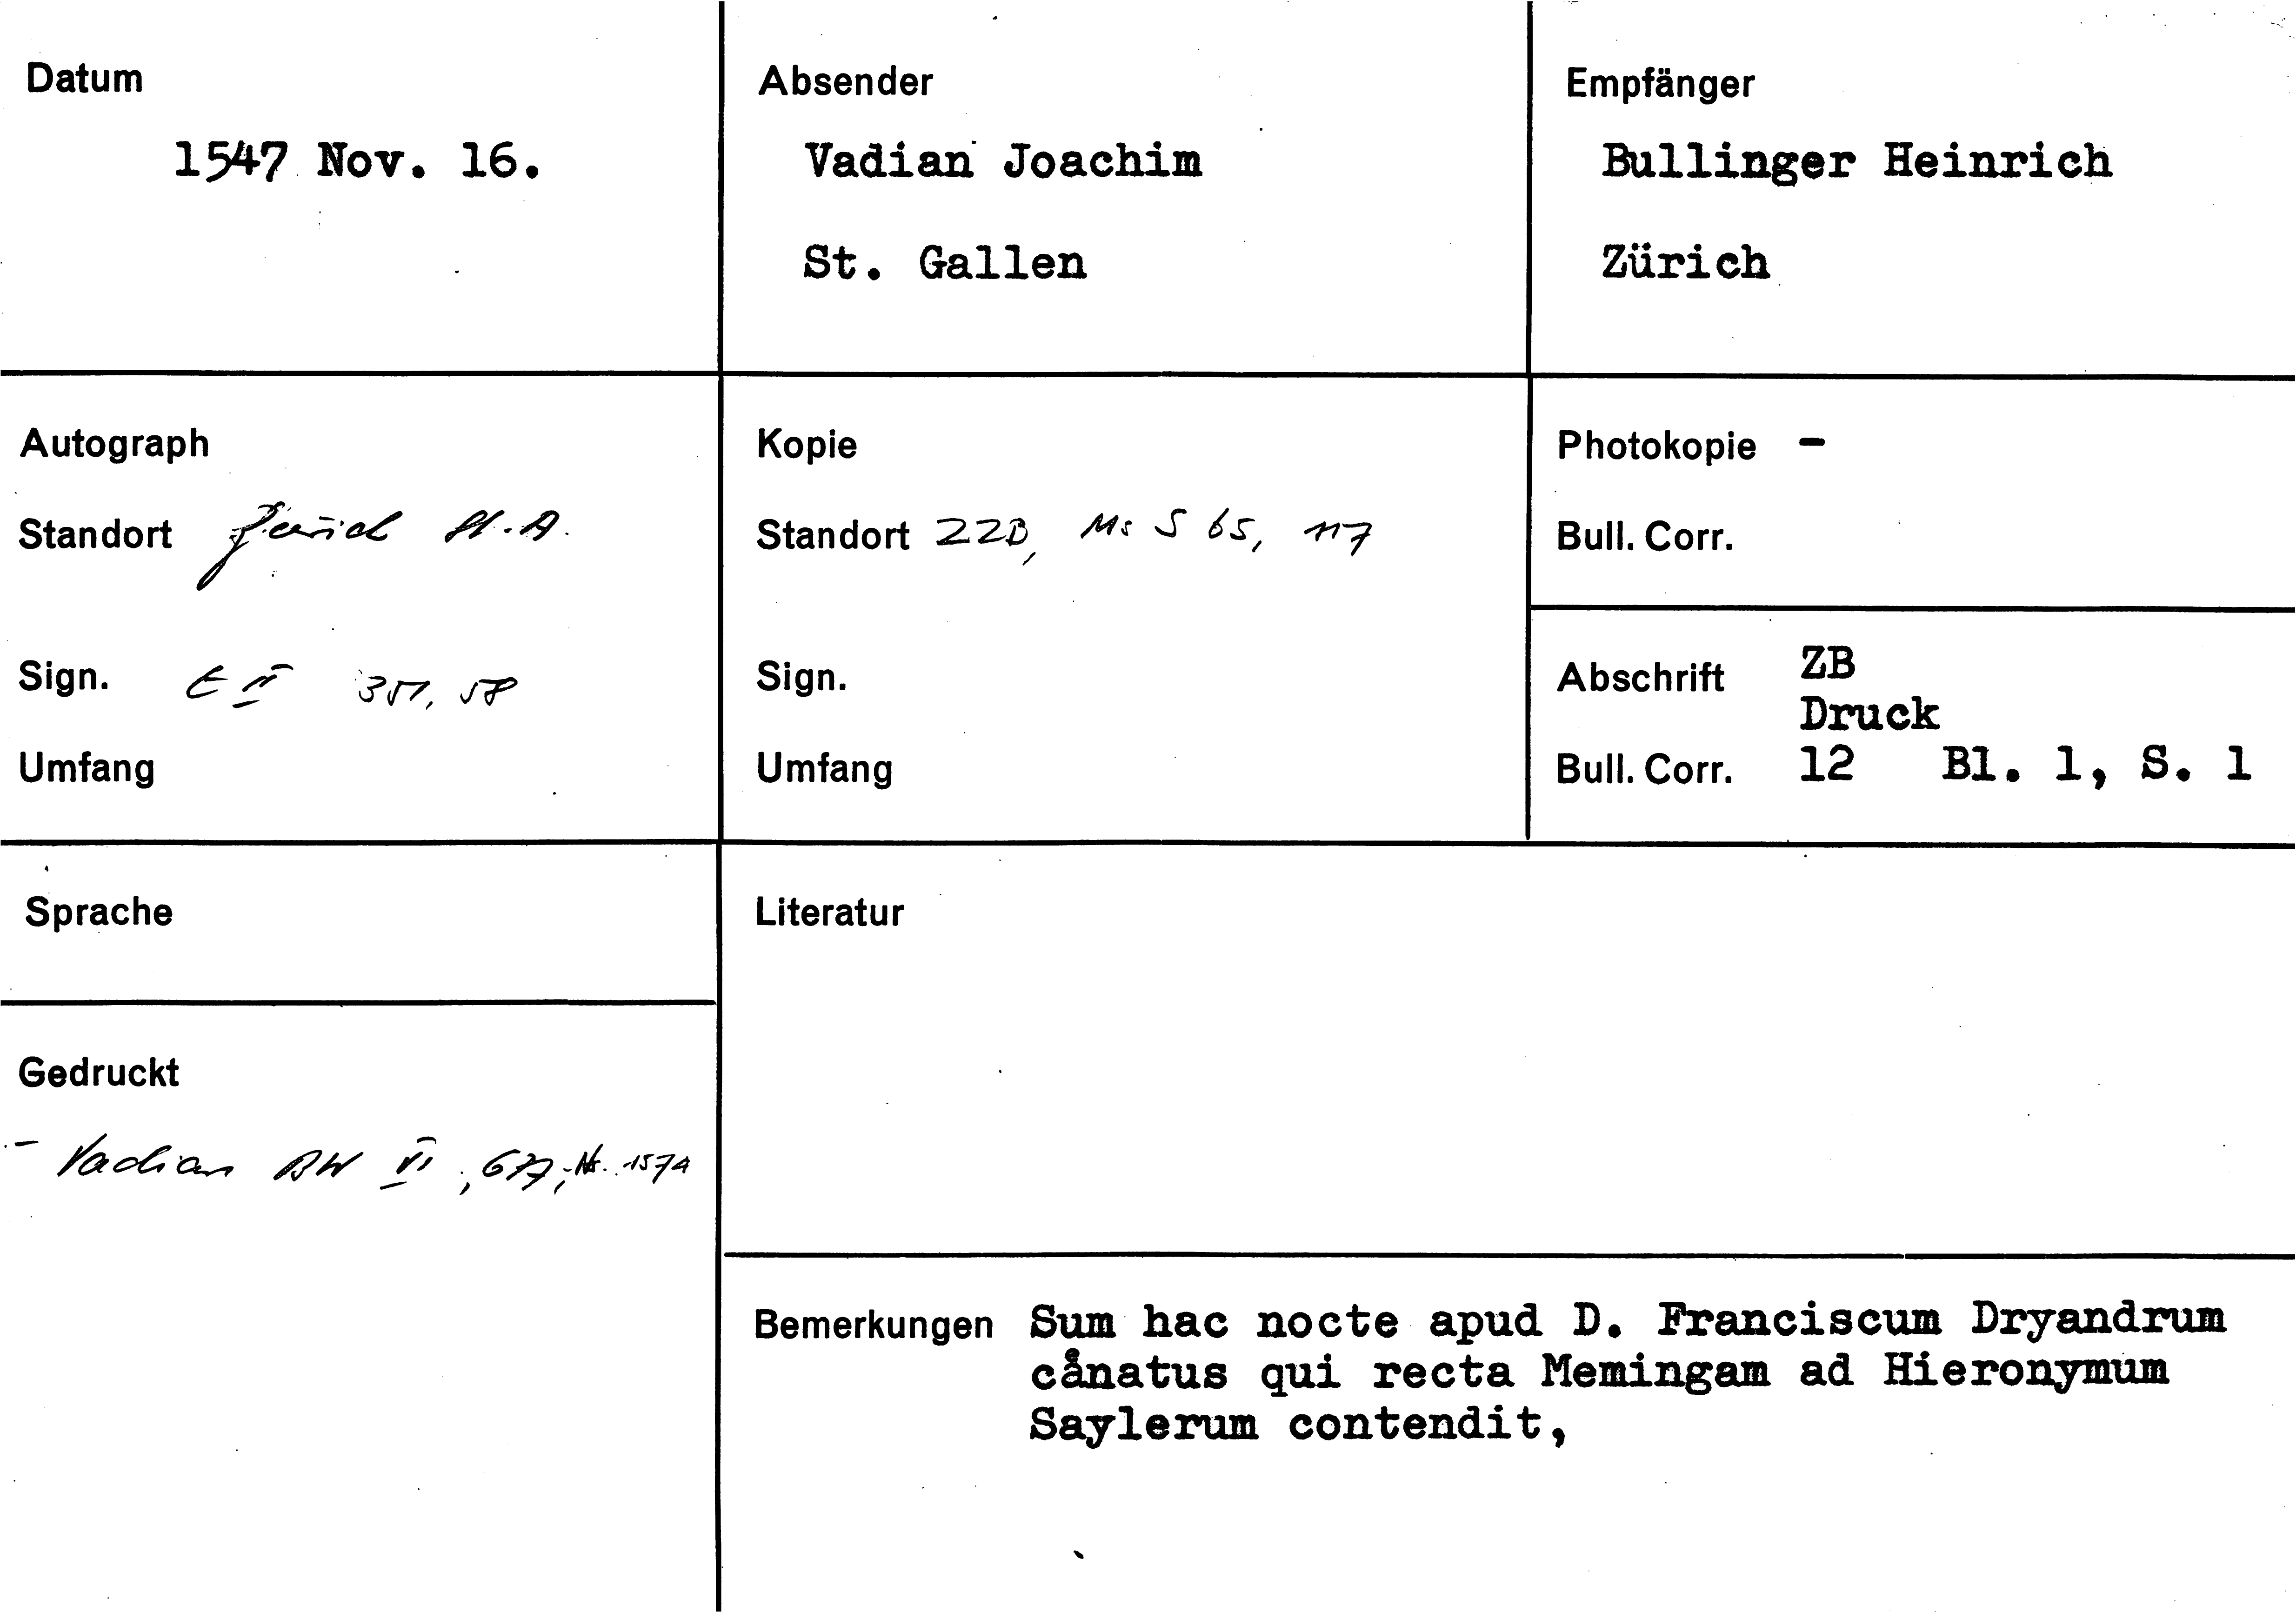 Datum
1547 Nov. 16.
Absender
Vadian Joachim
St. Gallen
Empfänger
Bullinger Heinrich
Zürich
Autograph
Standort Zürich St.A.
Sign. E II 351, 58
Umfang
Kopie
Standort ZZB, Ms S 65, 117
Sign.
Umfang
Photokopie -
Bull. Corr.
Abschrift ZB
Druck
Bull. Corr. 12 Bl. 1, S. 1
Sprache
Gedruckt
- Vadian BW VI, 677, Nr. 1574
Literatur
Bemerkungen Sum hac nocte apud D. Franciscum Dryandrum
cånatus qui recta Memingam ad Hieronymum
Saylerum contendit,